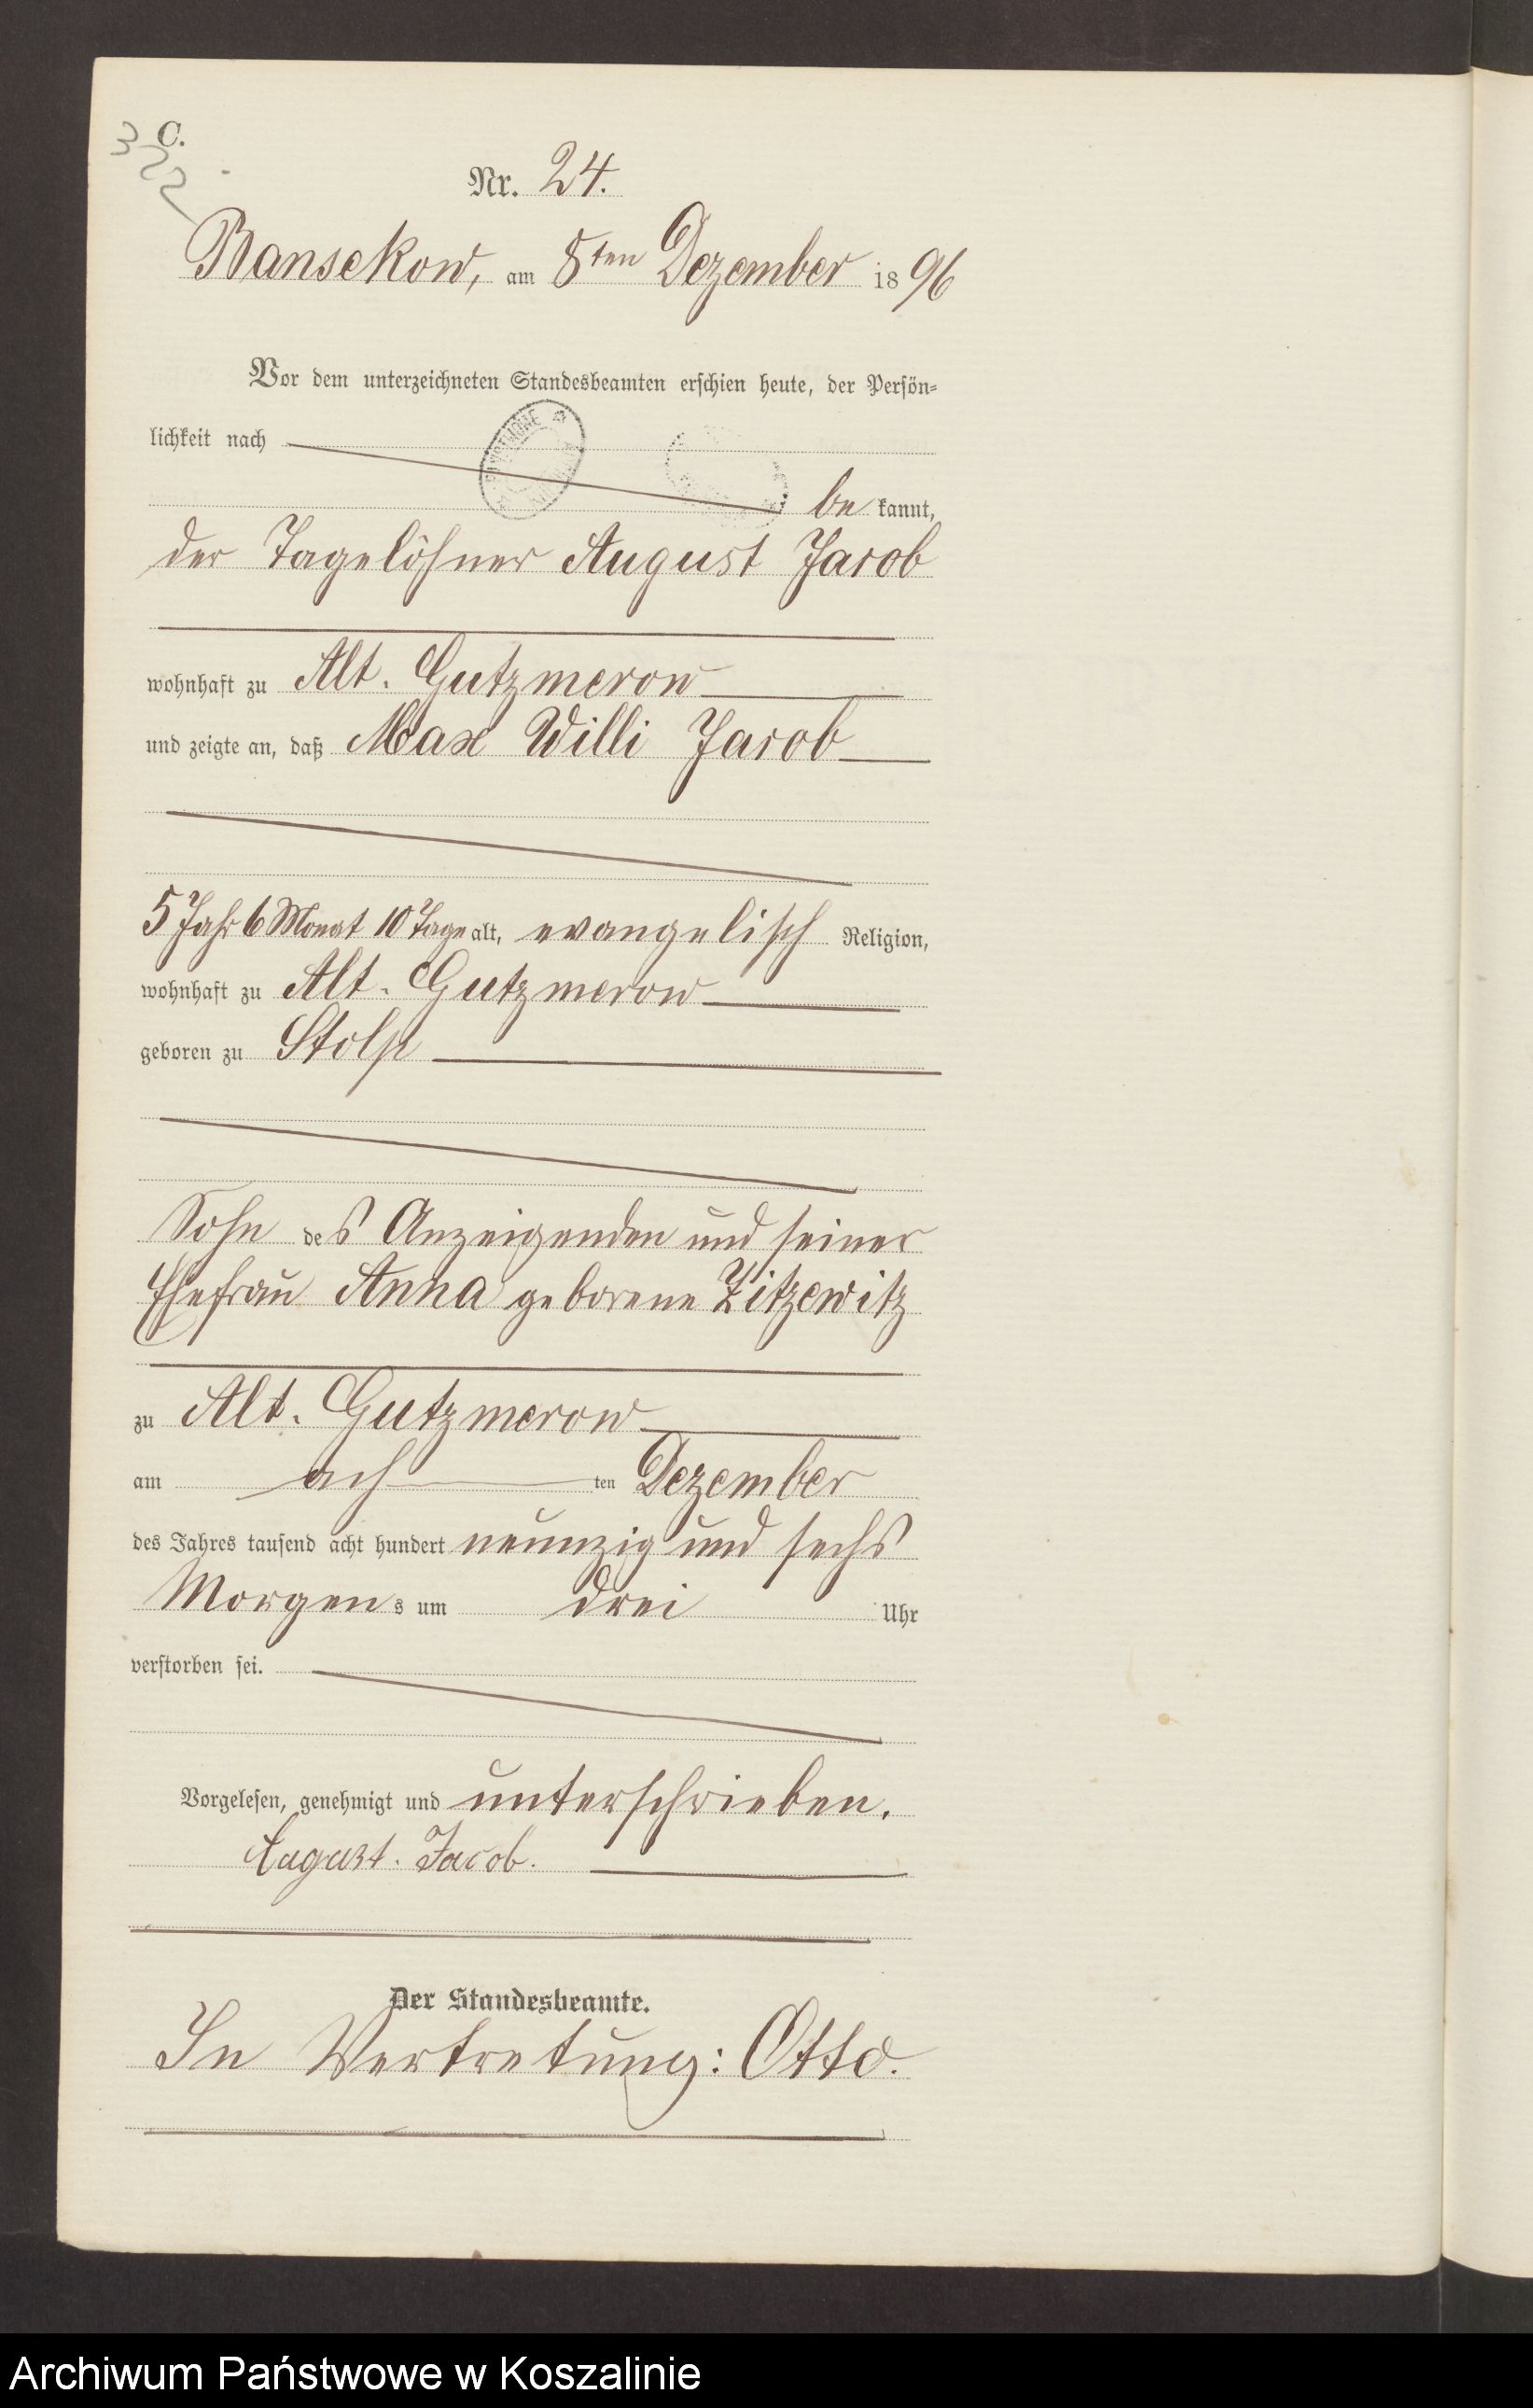 C.
Nr. 24.
Bansekow, am 8ten Dezember 1896
Vor dem unterzeichneten Standesbeamten erschien heute, der Persön=
lichkeit nach
be kannt,
der Tagelöhner August Jacob
wohnhaft zu Alt. Gutzmerow
und zeigte an, daß Max Willi Jacob
5 Jahr 6 Monat 10 Tage alt, evangelisch Religion,
wohnhaft zu Alt. Gutzmerow
geboren zu Stolp
Sohn des Anzeigenden und seiner
Ehefrau Anna geborene Zitzewitz
zu Alt. Gutzmerow
am ach ten Dezember
des Jahres tausend acht hundert neunzig und sechs
Morgens um drei Uhr
verstorben sei.
Vorgelesen, genehmigt und unterschrieben.
August. Jacob.
Der Standesbeamte.
In Vertretung: Otto.
Archiwum Państwowe w Koszalinie